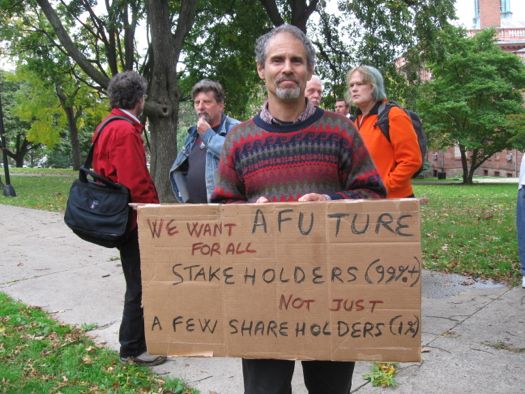 WE WANT A FUTURE
FOR ALL
STAKEHOLDERS (99%+)
NOT JUST
A FEW SHAREHOLDERS (1%)